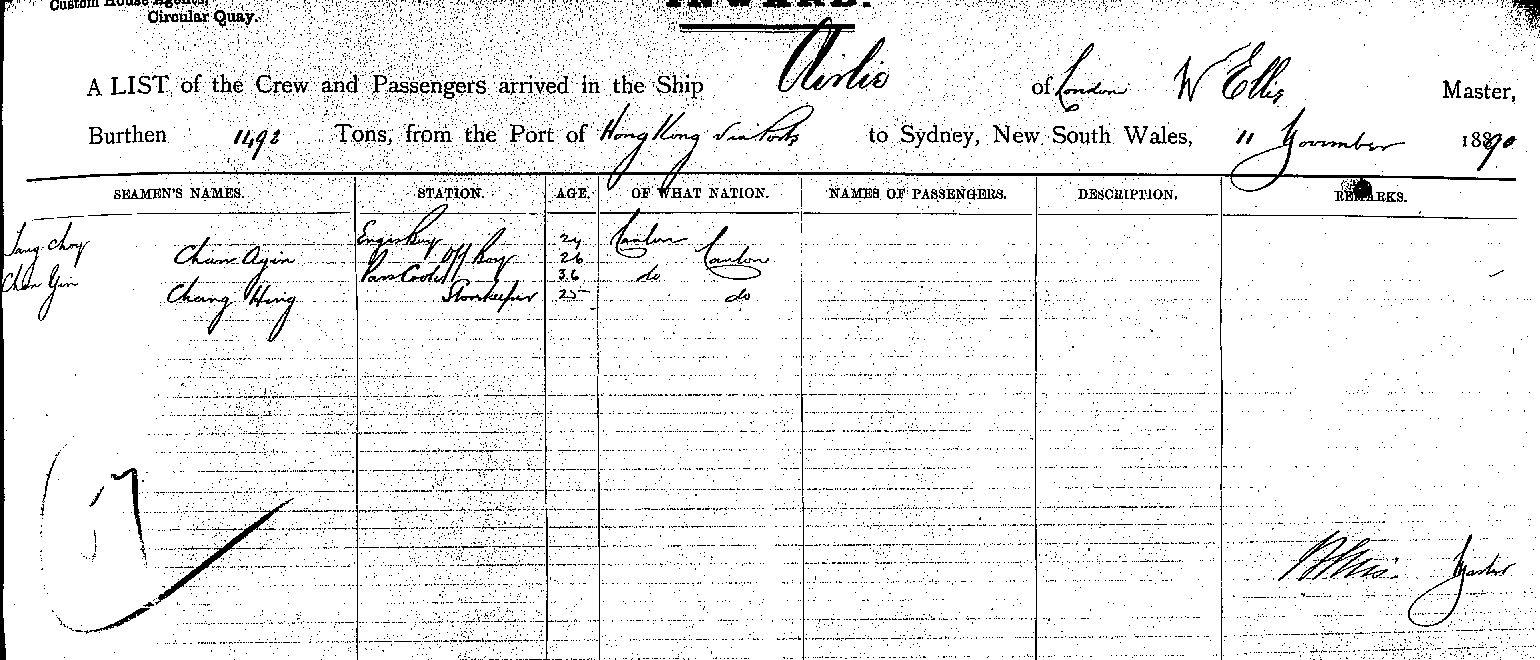 Custom House Agents,
Circular Quay.
INWARD.
A LIST of the Crew and Passengers arrived in the Ship Airlie of London W Ellis Master,
Burthen 1492 Tons, from the Port of Hong Kong via Ports to Sydney, New South Wales, 11 November 1890
SEAMEN'S NAMES. STATION. AGE. OF WHAT NATION. NAMES OF PASSENGERS. DESCRIPTION. REMARKS.
Tang Choy Engrs Boy 24 Canton
Chun Ayin Off Boy 26 Canton
Chen Yin Pass Cook 36 do
Chang Hing Storekeeper 25 do
57
W Ellis. Master